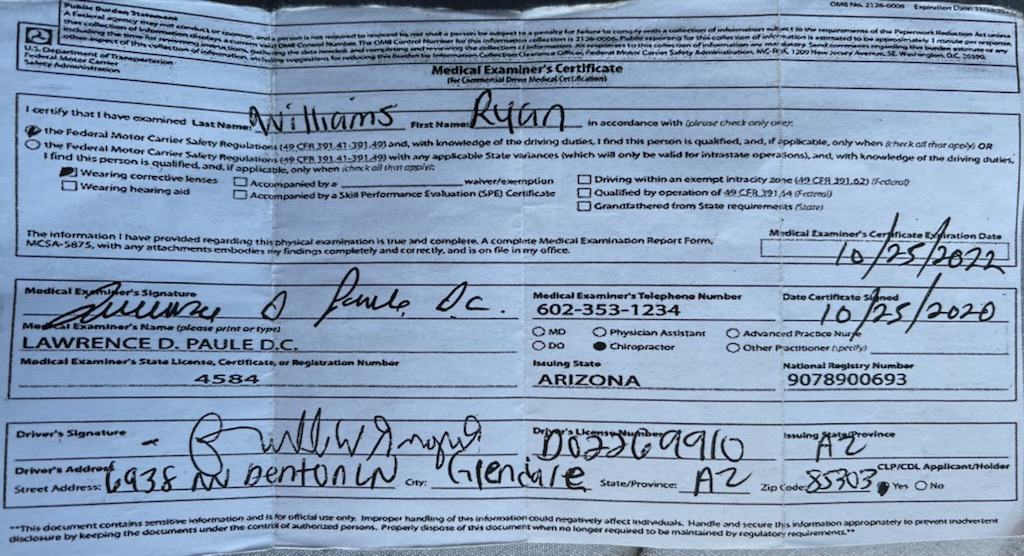 Public Burden Statement
OMB No. 2126-0006 Expiration Date:
A Federal agency may not conduct or sponsor, and a person is not required to respond to, nor shall a person be subject to a penalty for failure to comply with a collection of information subject to the requirements of the Paperwork Reduction Act unless
that collection of information displays a current valid OMB Control Number. The OMB Control Number for this information collection is 2126-0006. Public reporting for this collection of information is estimated to be approximately 1 minute per response,
Federal Motor Carrier Safety Administration, MC-RRA, 1200 New Jersey Avenue, SE, Washington, D.C. 20590.
U.S. Department of Transportation
Federal Motor Carrier
Safety Administration
Medical Examiner's Certificate
(for Commercial Driver Medical Certification)
I certify that I have examined Last Name: Williams First Name: Ryan in accordance with (please check only one):
the Federal Motor Carrier Safety Regulations (49 CFR 391.41-391.49) and, with knowledge of the driving duties, I find this person is qualified, and, if applicable, only when (check all that apply) OR
the Federal Motor Carrier Safety Regulations (49 CFR 391.41-391.49) with any applicable State variances (which will only be valid for intrastate operations), and, with knowledge of the driving duties,
I find this person is qualified, and, if applicable, only when (check all that apply):
Wearing corrective lenses Accompanied by a waiver/exemption Driving within an exempt intracity zone (49 CFR 391.62) (Federal)
Wearing hearing aid Accompanied by a Skill Performance Evaluation (SPE) Certificate Qualified by operation of 49 CFR 391.64 (Federal)
Grandfathered from State requirements (State)
The information I have provided regarding this physical examination is true and complete. A complete Medical Examination Report Form,
MCSA-5875, with any attachments embodies my findings completely and correctly, and is on file in my office.
Medical Examiner's Certificate Expiration Date
10/25/2022
Medical Examiner's Signature
Lawrence D Paule, D.C.
Medical Examiner's Telephone Number
602-353-1234
Date Certificate Signed
10/25/2020
Medical Examiner's Name (please print or type)
LAWRENCE D. PAULE D.C.
MD Physician Assistant Advanced Practice Nurse
DO Chiropractor Other Practitioner (specify)
Medical Examiner's State License, Certificate, or Registration Number
4584
Issuing State
ARIZONA
National Registry Number
9078900693
Driver's Signature
Driver's License Number
D02269910
Issuing State/Province
AZ
Driver's Address
Street Address: 6938 W Denton LN City: Glendale State/Province: AZ Zip Code: 85303
CLP/CDL Applicant/Holder
Yes No
**This document contains sensitive information and is for official use only. Improper handling of this information could negatively affect individuals. Handle and secure this information appropriately to prevent inadvertent
disclosure by keeping the documents under the control of authorized persons. Properly dispose of this document when no longer required to be maintained by regulatory requirements.**